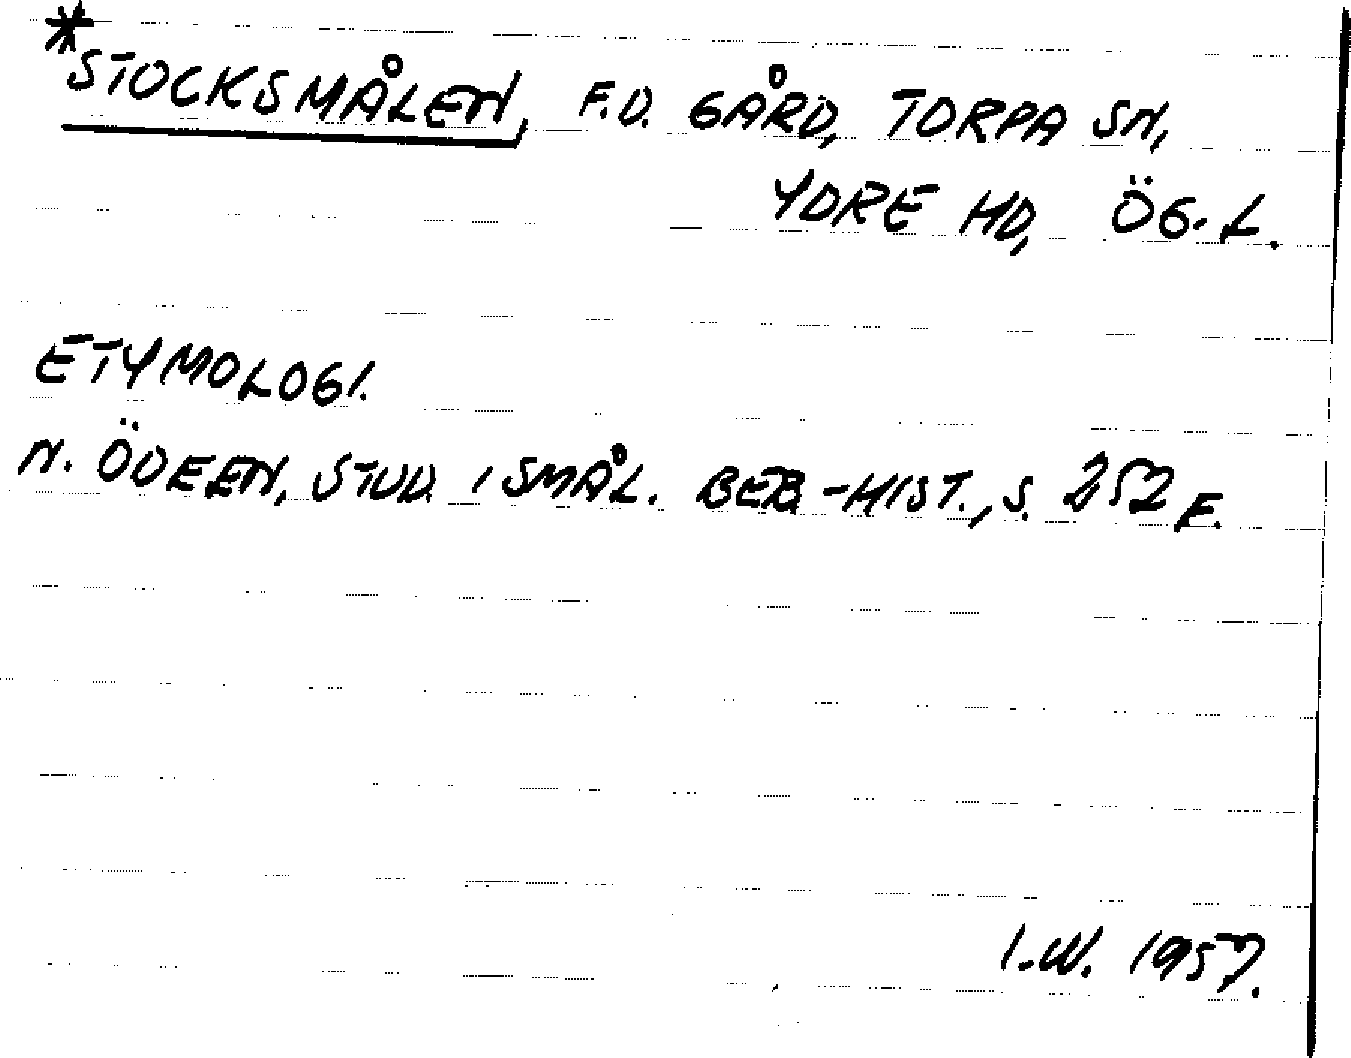 *STOCKSMÅLEN, F.D. GÅRD, TORPA SN,
YDRE HD, ÖG.L.
ETYMOLOGI.
N. ÖDEEN, STUD. I SMÅL. BEB.-HIST., S. 252 F.
I.W. 1957.